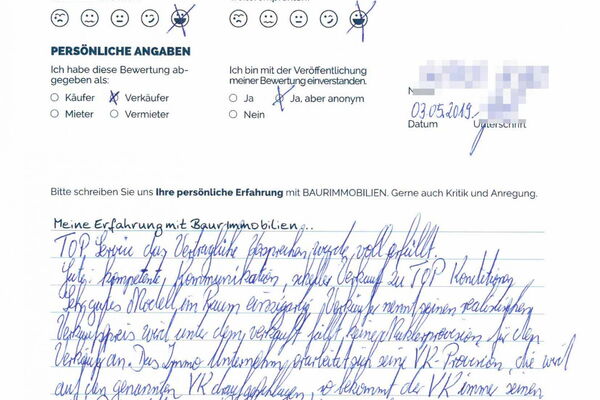 PERSÖNLICHE ANGABEN
Ich habe diese Bewertung ab-
gegeben als:
Käufer Verkäufer
Mieter Vermieter
Ich bin mit der Veröffentlichung
meiner Bewertung einverstanden.
Ja Ja, aber anonym
Nein
03.05.2019
Datum Unterschrift
Bitte schreiben Sie uns Ihre persönliche Erfahrung mit BAURIMMOBILIEN. Gerne auch Kritik und Anregung.
Meine Erfahrung mit Baur Immobilien...
TOP Service das Vertragliche besprochen wurde voll erfüllt.
kompetente Kommunikation, Verkauf zu TOP Konditionen
Sehr gutes Modell im Raum einzigartig Verkäufer nennt seinen realistischen
Verkaufspreis wird unter dem verkauft fällt keine Maklerprovision für den
Verkäufer an. Das Immo Unternehmen erarbeitet sich seine VK-Provision, die wird
auf den genannten VK draufgeschlagen, so bekommt der VK immer seinen